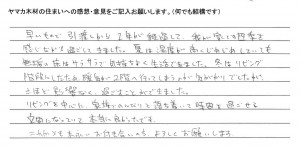 ヤマカ木材の住まいへの感想・意見をご記入お願いします。（何でも結構です）
早いもので引渡しから2年が経過して、我が家でも四季を
感じながら過ごしてきました。夏は湿度が高くじめじめしていても
無垢の床はサラサラで気持ちなく生活できました。冬はリビング
階段にしたため、暖気が2階へ行ってしまうか気がかりでしたが
さほど影響なく、過ごすことができました。
リビングを中心に、家族でのんびりと落ち着いて時間を過ごせる
空間になっていて本当に良かったです。
これからも末永いお付き合いの程、よろしくお願いします。